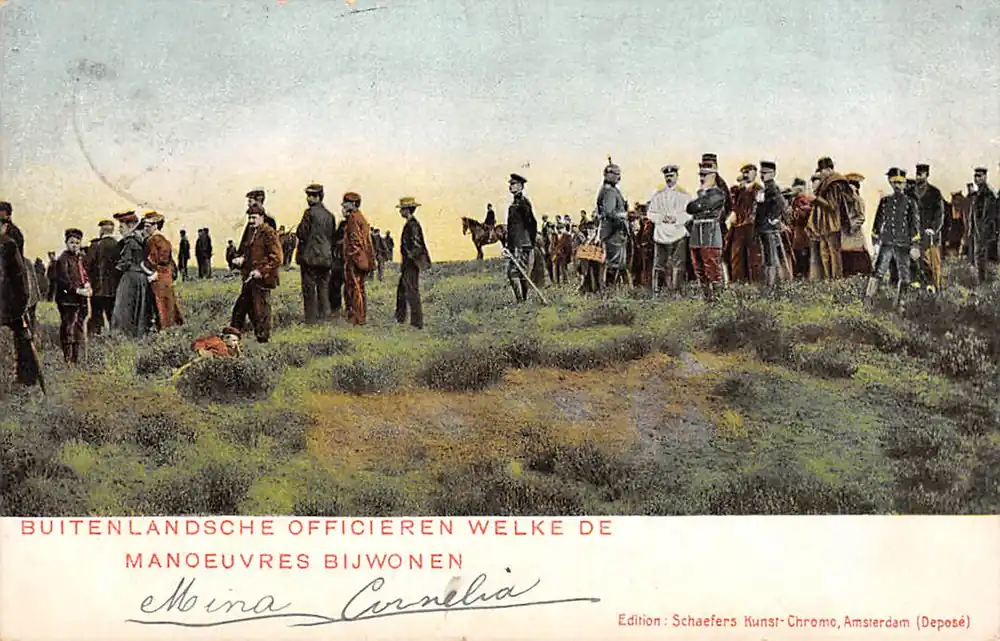 BUITENLANDSCHE OFFICIEREN WELKE DE
MANOEUVRES BIJWONEN
Mina Cornelia
Edition: Schaefers Kunst-Chromo, Amsterdam (Deposé)